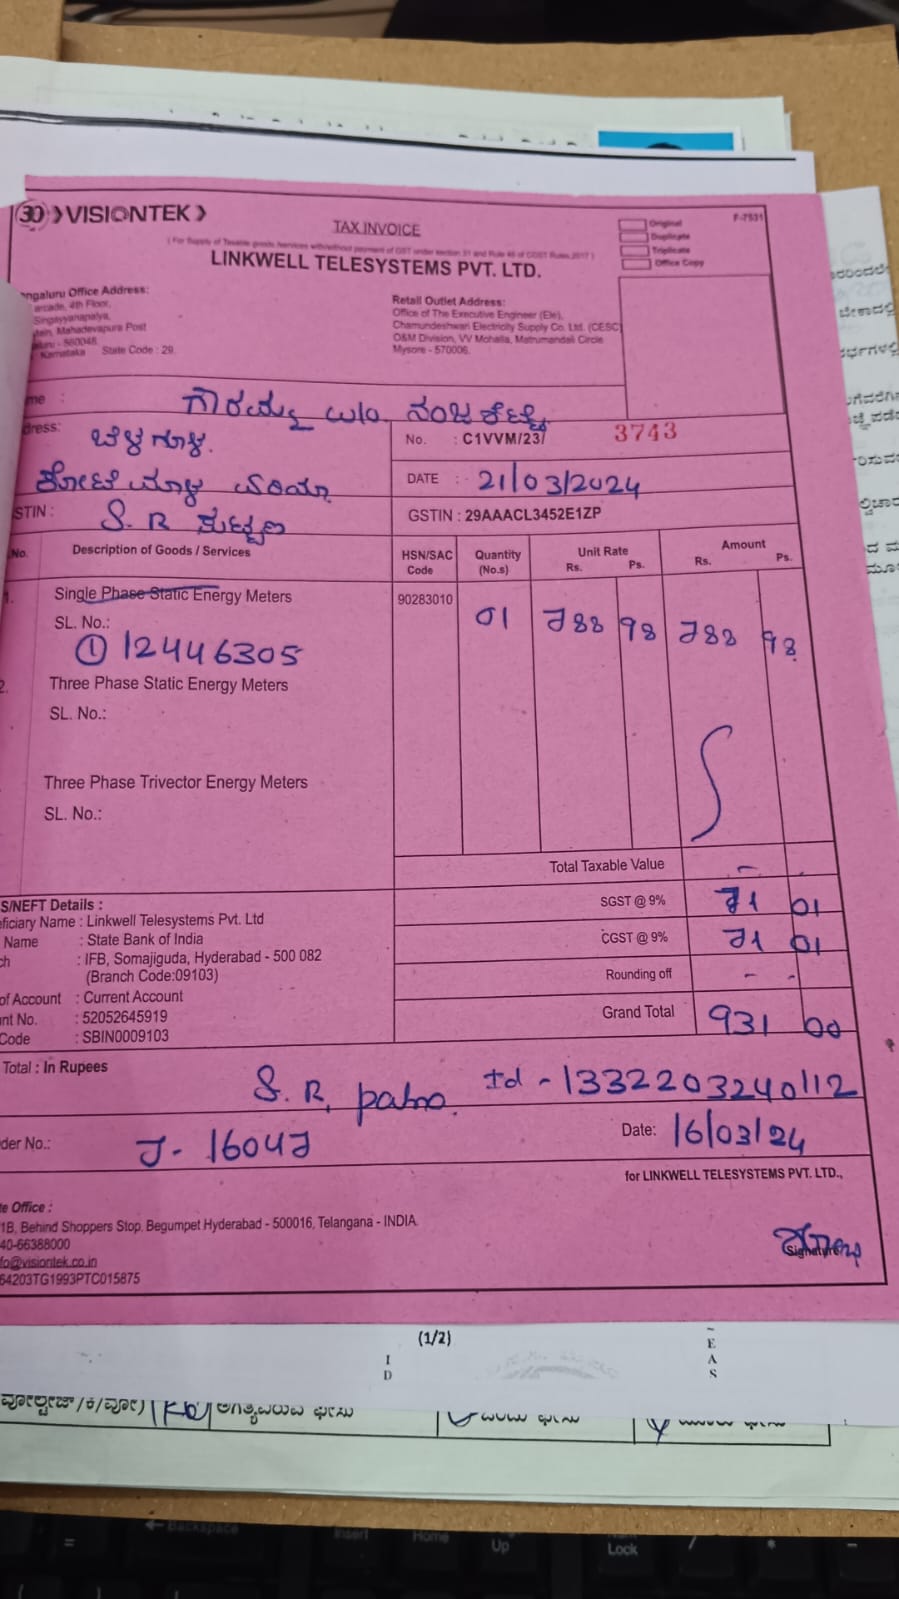 30 VISIONTEK
TAX INVOICE
F-7531
Original
Duplicate
Triplicate
Office Copy
( For Supply of Taxable goods /services with/without payment of GST under section 31 and Rule 46 of CGST Rules,2017 )
LINKWELL TELESYSTEMS PVT. LTD.
ngaluru Office Address:
arcade, 4th Floor,
Singayyanapalya,
Mahadevapura Post
- 560048
Karnataka State Code : 29.
Retail Outlet Address:
Office of The Executive Engineer (Ele),
Chamundeshwari Electricity Supply Co. Ltd. (CESC)
O&M Division, VV Mohalla, Matrumandali Circle
Mysore - 570006.
me : ಗೌರಮ್ಮ w/o
dress:
No. : C1VVM/23/ 3743
DATE : 21/03/2024
STIN : S. R
GSTIN : 29AAACL3452E1ZP
No. Description of Goods / Services HSN/SAC Code Quantity (No.s) Unit Rate Rs. Ps. Amount Rs. Ps.
1. Single Phase Static Energy Meters 90283010 01 788 98 788 98
SL. No.:
① 12446305
2. Three Phase Static Energy Meters
SL. No.:
Three Phase Trivector Energy Meters
SL. No.:
Total Taxable Value -
S/NEFT Details :
SGST @ 9% 71 01
eficiary Name : Linkwell Telesystems Pvt. Ltd
CGST @ 9% 71 01
Name : State Bank of India
ch : IFB, Somajiguda, Hyderabad - 500 082
(Branch Code:09103)
Rounding off - -
of Account : Current Account
nt No. : 52052645919
Grand Total 931 00
Code : SBIN0009103
Total : In Rupees
S. R, Id - 1332203240112
der No.: J- 16047
Date: 16/03/24
for LINKWELL TELESYSTEMS PVT. LTD.,
te Office :
1B, Behind Shoppers Stop, Begumpet Hyderabad - 500016, Telangana - INDIA.
40-66388000
fo@visiontek.co.in
64203TG1993PTC015875
Signature
(1/2)
I
D
E
A
S
Backspace
Insert
Home
Up
Num
Lock
=
/
*
-